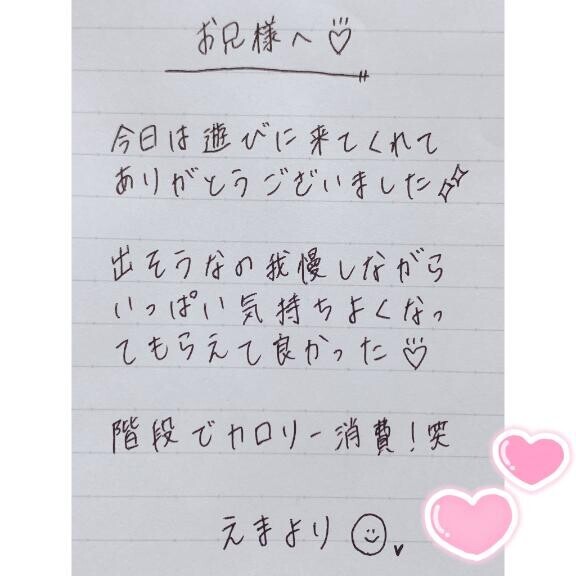 お兄様へ♡
今日は遊びに来てくれて
ありがとうございました✨
出そうなの我慢しながら
いっぱい気持ちよくなっ
てもらえて良かった♡
階段でカロリー消費！笑
えまより